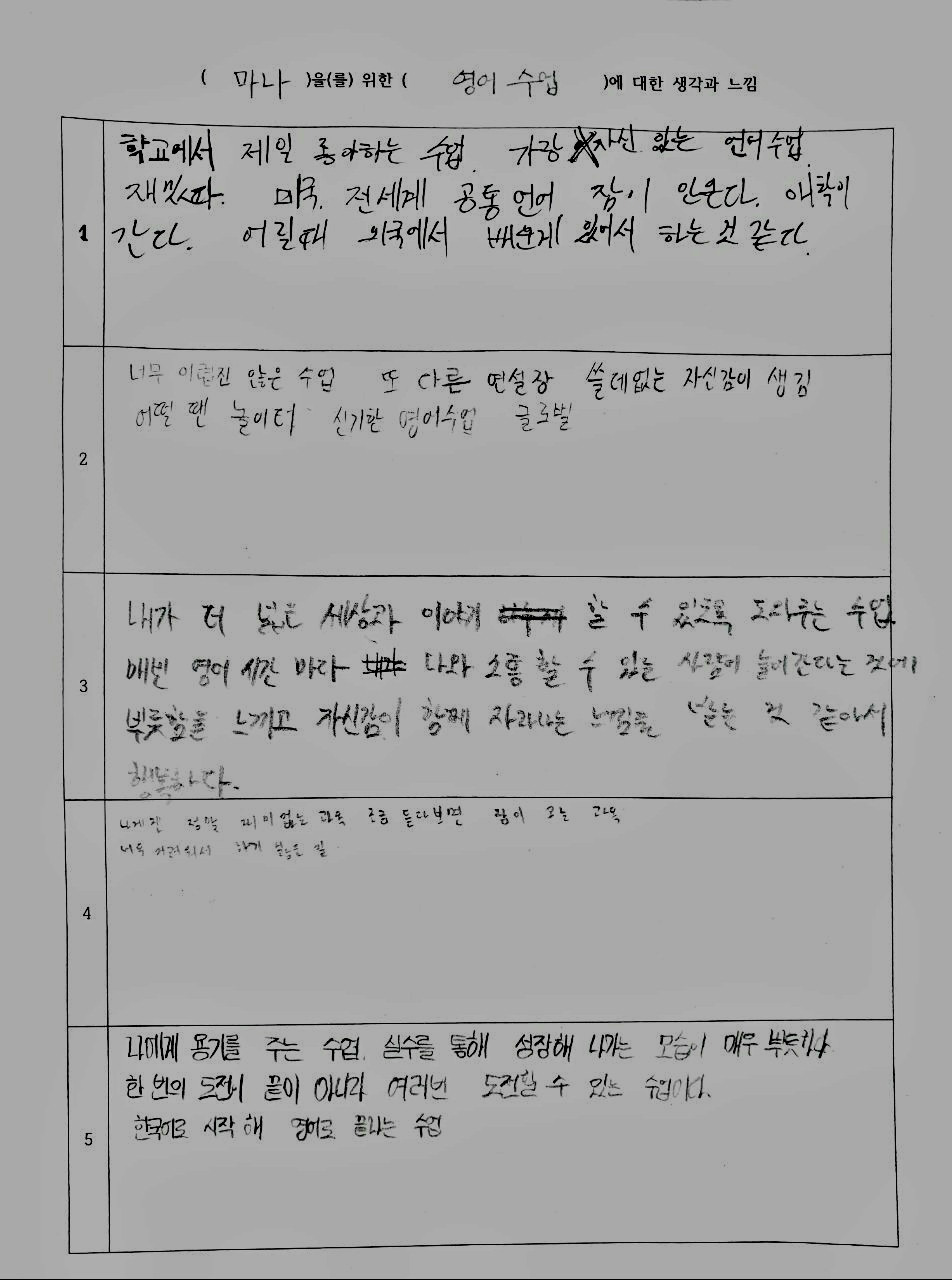 ( 마나 )을(를) 위한 ( 영어 수업 )에 대한 생각과 느낌
1
학교에서 제일 좋아하는 수업 가장 자신 있는 언어수업
재밌다. 미국. 전세계 공통언어 잠이 안온다.
간다. 어릴때 외국에서 배운게 있어서 하는 것 같다.
2
너무 어렵진 않은 수업 또 다른 연설장 쓸데없는 자신감이 생김
어떨 땐 놀이터 신기한 영어수업 글로벌
3
내가 더 넓은 세상과 이야기 할 수 있도록 도와주는 수업
매번 영어 시간 마다 나와 소통 할 수 있는 사람이 늘어간다는 것에
뿌듯함을 느끼고 자신감이 함께 자라나는 느낌을 받는 것 같아서
행복하다.
4
나에겐 정말 재미없는 과목 조금 듣다보면 잠이 오는 과목
너무 어려워서 하기 싫은
5
나에게 용기를 주는 수업. 실수를 통해 성장해 나가는 모습이 매우 뿌듯하다
한 번의 도전이 끝이 아니라 여러번 도전할 수 있는 수업이다.
한국어로 시작해 영어로 끝나는 수업